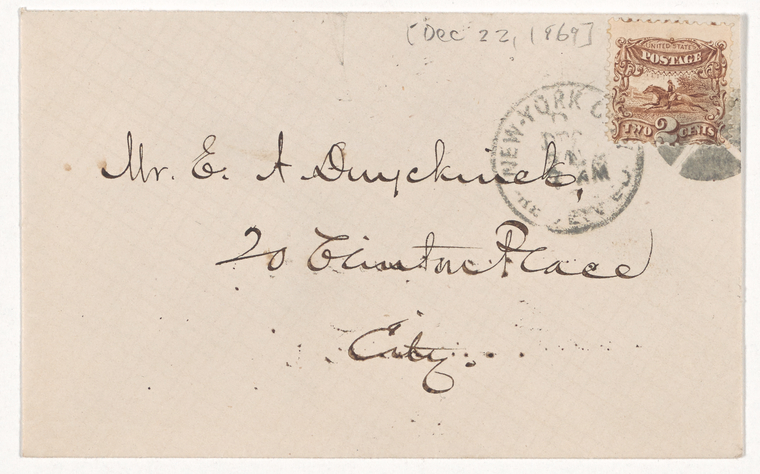 [Dec 22, 1869]
UNITED STATES
POSTAGE
TWO 2 CENTS
NEW-YORK
DEC
AM
Mr. E. A Duyckinck,
20 Clinton Place
City.